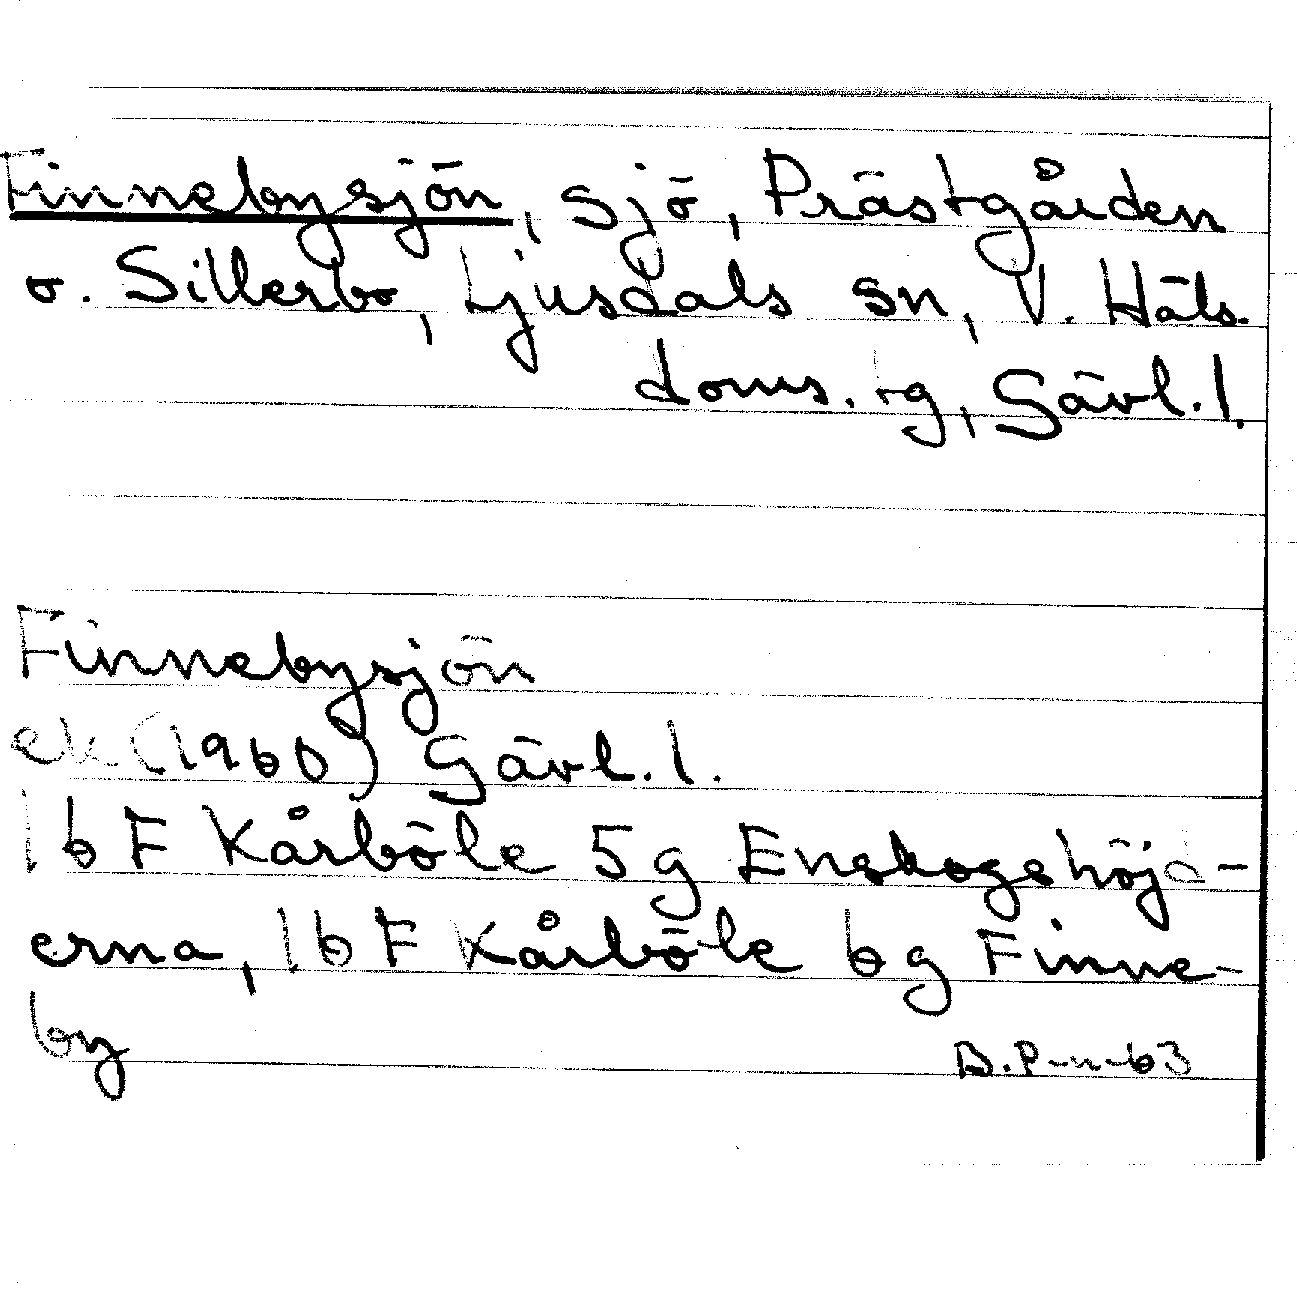 Finnebysjön, sjö, Prästgården
o. Sillerbo, Ljusdals sn, V. Häls.
doms. tg, Gävl. l.
Finnebysjön
ek (1960) Gävl. l.
16 F Kårböle 5g Enskogshöjd-
erna, 16 F Kårböle 6g Finne-
by